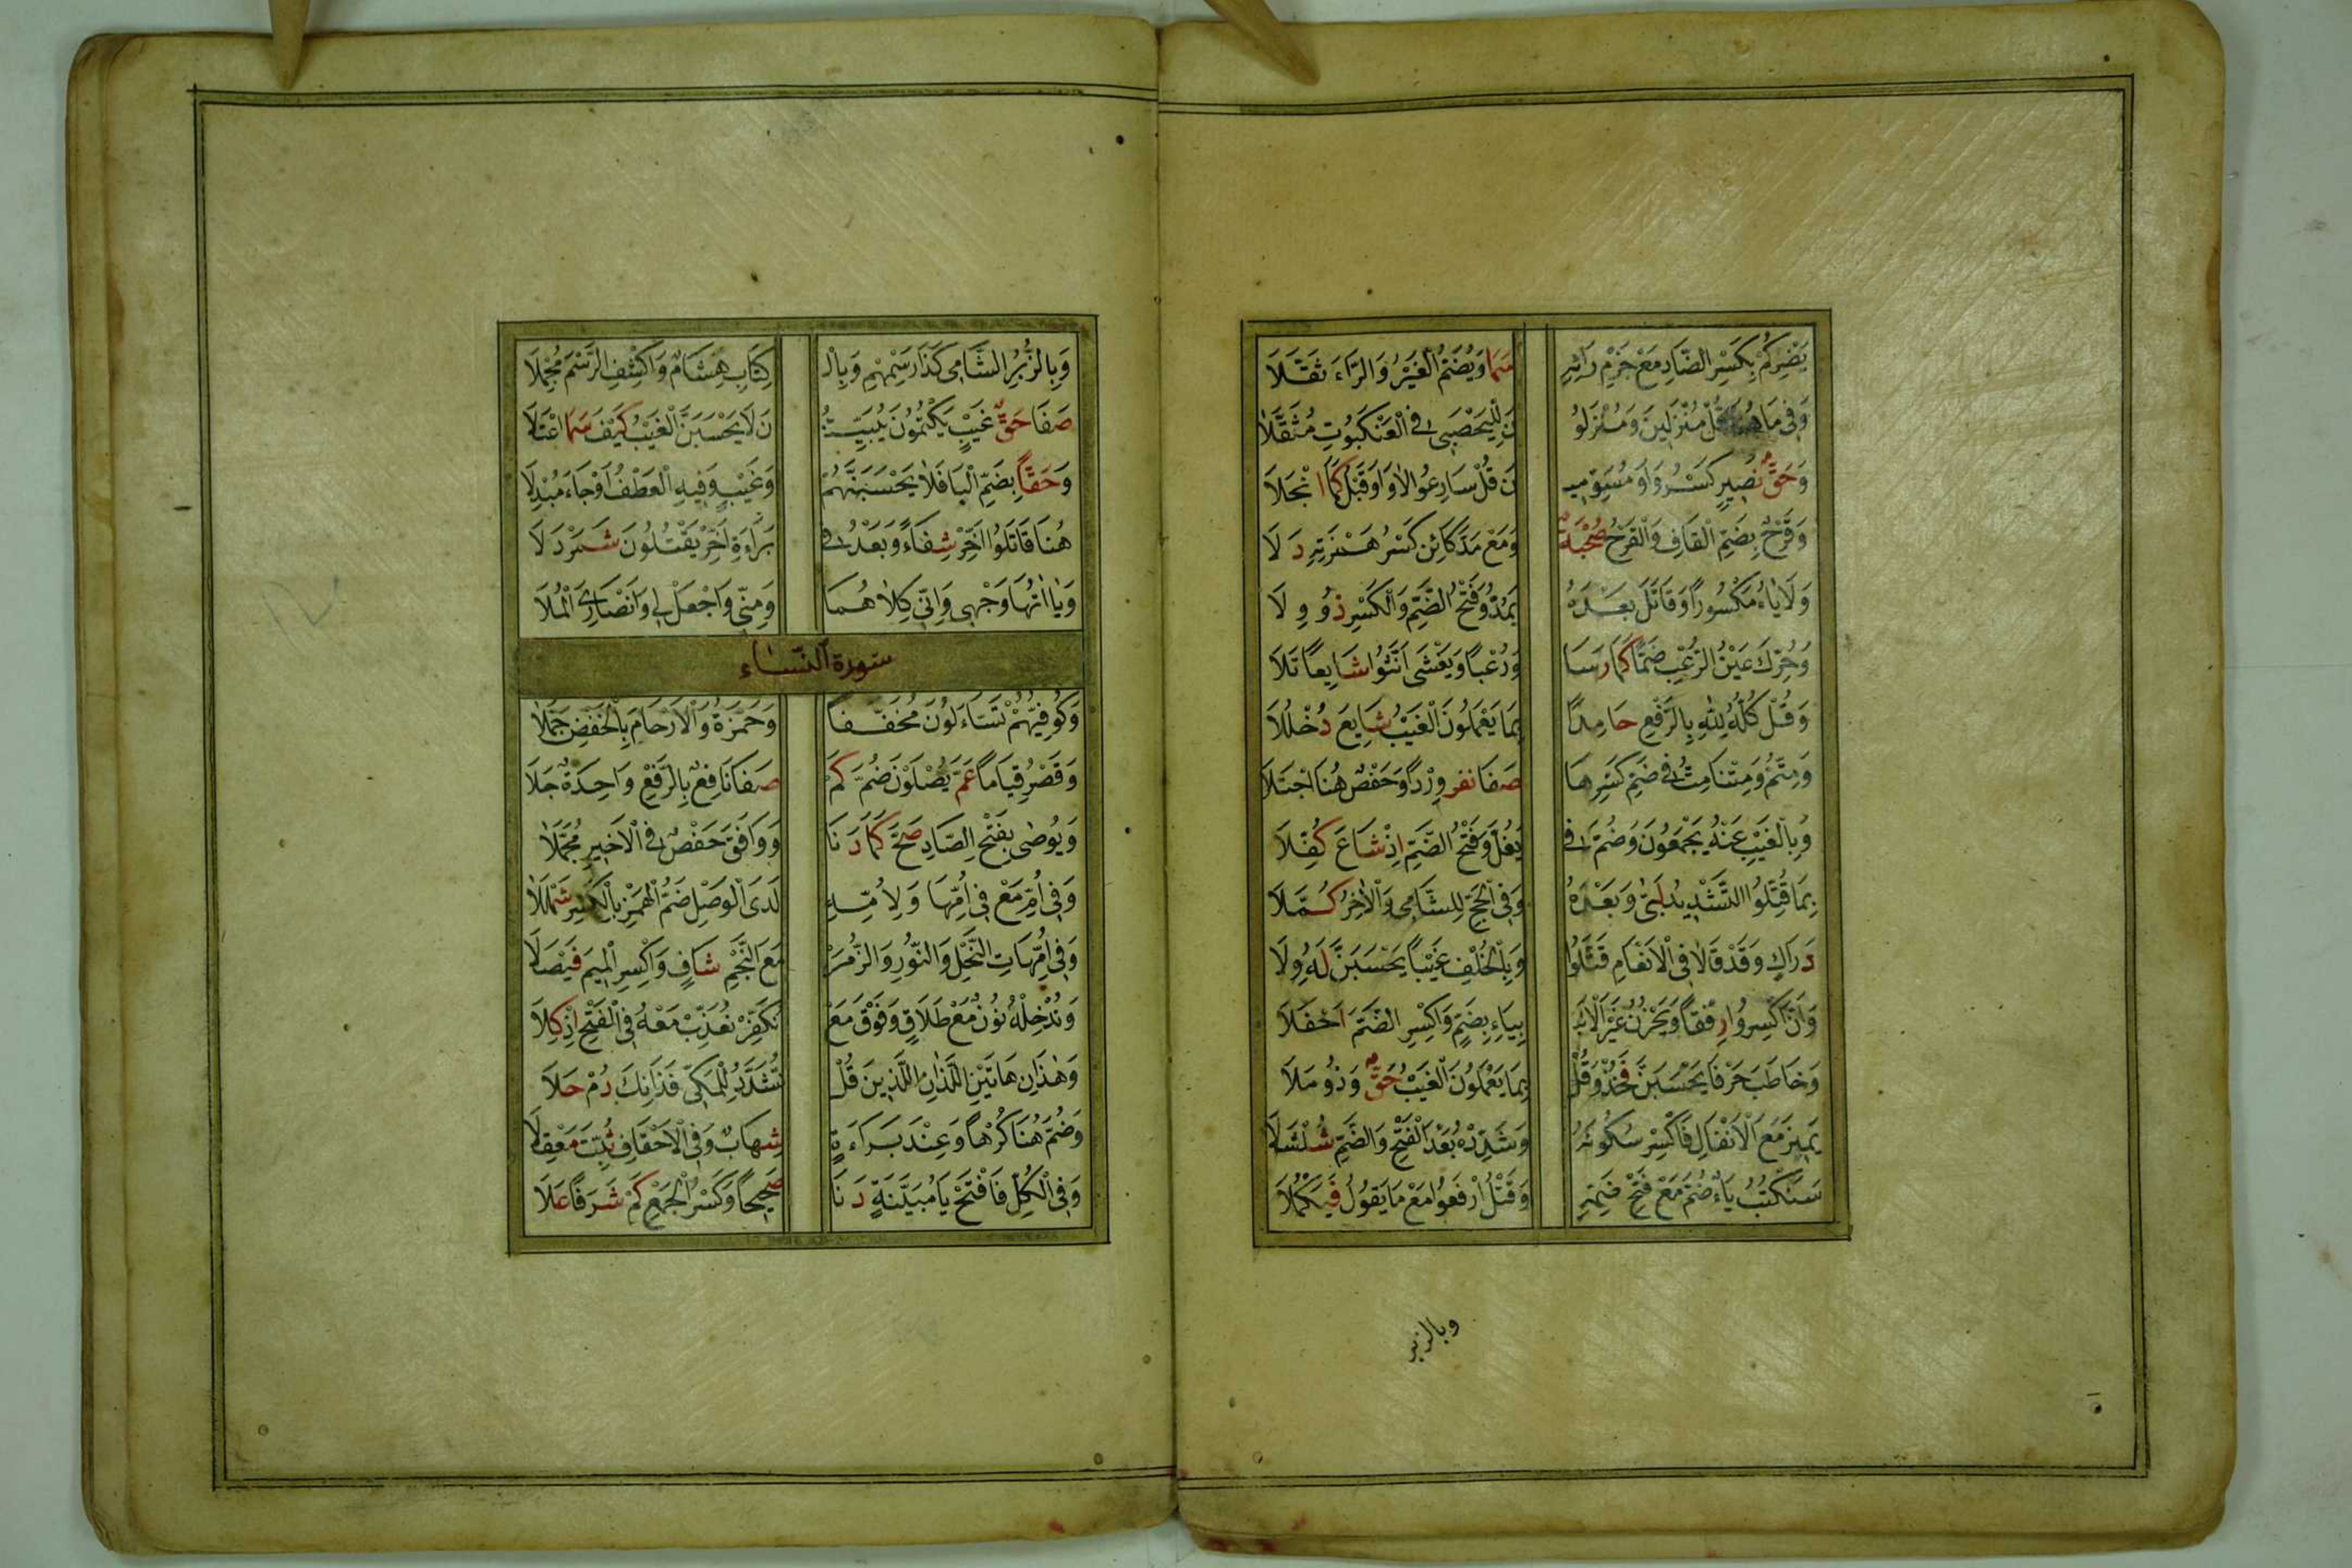 يَضِرْكُمْ بِكَسْرِ الضَّادِ مَعْ جَزْمِ رَائِهِ سَمَا وَيُضَمُّ الْغَيْرُ وَالرَّاءَ ثَقَّلَا
وَفِي مَا هُنَا قُلْ مُنْزَلِينَ وَمُنْزَلُو نَ لِلْيَحْصَبِي فِي الْعَنْكَبُوتِ مُثَقَّلَا
وَحَقُّ نَصِيرٍ كَسْرُ وَاوِ مُسَوِّمِيـ نَ قُلْ سَارِعُوا لَا وَاوَ قَبْلُ كَمَا انْجَلَا
وَقَرْحٌ بِضَمِّ الْقَافِ وَالْقَرْحُ صُحْبَةٌ وَمَعْ مَدِّ كَائِنْ كَسْرُ هَمْزَتِهِ دَلَا
وَلَا يَاءَ مَكْسُورًا وَقَاتَلَ بَعْدَهُ يُمَدُّ وَفَتْحُ الضَّمِّ وَالْكَسْرِ ذُو وِلَا
وَحُرِّكَ عَيْنُ الرُّعْبِ ضَمًّا كَمَا رَسَا وَرُعْبًا وَيَغْشَى أَنَّثُوا شَايِعًا تَلَا
وَقُلْ كُلُّهُ لِلّٰهِ بِالرَّفْعِ حَامِدًا بِمَا يَعْمَلُونَ الْغَيْبُ شَايِعَ دُخْلُلَا
وَمِتُّمْ وَمِتْنَا مِتُّ فِي ضَمِّ كَسْرِهَا صَفَا نَفَرٌ وِرْدًا وَحَفْصٌ هُنَا اجْتَلَا
وَبِالْغَيْبِ عَنْهُ يَجْمَعُونَ وَضُمَّ فِي يَغُلَّ وَفَتْحُ الضَّمِّ إِذْ شَاعَ كُفِّلَا
بِمَا قُتِّلُوا التَّشْدِيدُ لَبَّى وَبَعْدَهُ وَفِي الْحَجِّ لِلشَّامِي وَالْآخِرُ كَمَّلَا
دَرَاكِ وَقَدْ قَالَا فِي الْأَنْعَامِ قَتَّلُوا وَبِالْخُلْفِ غَيْبًا يَحْسَبَنَّ لَهُ وِلَا
وَأَنَّ اكْسِرُوا رِفْقًا وَيَحْزُنُ غَيْرَ الْأَنْبِـ بِيَاءِ بِضَمٍّ وَاكْسِرِ الضَّمَّ أَحْفَلَا
وَخَاطَبَ حَرْفَا يَحْسَبَنَّ فَخُذْ وَقُلْ بِمَا يَعْمَلُونَ الْغَيْبُ حَقٌّ وَذُو مَلَا
يَمِيزَ مَعَ الْأَنْفَالِ فَاكْسِرْ سُكُونَهُ وَشَدِّدْهُ بَعْدَ الْفَتْحِ وَالضَّمِّ شُلْشُلَا
سَنَكْتُبُ يَاءٌ ضُمَّ مَعْ فَتْحِ ضَمِّهِ وَقَتْلُ ارْفَعُوا مَعْ مَا يَقُولُ فَيَكْمُلَا
وبالزبر
وَبِالزُّبُرِ الشَّامِي كَذَا رَسْمُهُمْ وَبِالْـ كِتَابِ هِشَامٌ وَاكْشِفِ الرَّسْمَ مُجْمِلَا
صَفَا حَقُّ غَيْبٍ يَكْتُمُونَ يُبَيِّنُـ نَ لَا يَحْسَبَنَّ الْغَيْبُ كَيْفَ سَمَا اعْتَلَا
وَحَقًّا بِضَمِّ الْبَا فَلَا يَحْسَبَنَّهُمْ وَغَيْبٍ وَفِيهِ الْعَطْفُ أَوْ جَاءَ مُبْدِلَا
هُنَا قَاتَلُوا أَخِّرْ شِفَاءً وَبَعْدُ فِي بَرَاءَةَ أَخِّرْ يَقْتُلُونَ شَمَرْدَلَا
وَيَاأٰتُهَا وَجْهِي وَإِنِّي كِلَاهُمَا وَمِنِّي وَاجْعَلْ لِي وَأَنْصَارِيَ الْمُلَا
سورة النساء
وَكُوفِيُّهُمْ تَسَاءَلُونَ مُخَفَّفًا وَحَمْزَةُ وَالْأَرْحَامِ بِالْخَفْضِ جَمَّلَا
وَقَصْرُ قِيَامًا عَمَّ يُصْلَوْنَ ضُمَّ كَمْ صَفَا نَافِعٌ بِالرَّفْعِ وَاحِدَةٌ جَلَا
وَيُوصٰى بِفَتْحِ الصَّادِ صَحَّ كَمَا دَنَا وَوَافَقَ حَفْصٌ فِي الْأَخِيرِ مُجَمَّلَا
وَفِي أُمِّ مَعْ فِي أُمِّهَا وَلِأُمِّهِ لَدَى الْوَصْلِ ضَمُّ الْهَمْزِ بِالْكَسْرِ شَمْلَلَا
وَفِي أُمَّهَاتِ النَّحْلِ وَالنُّورِ وَالزُّمَرْ مَعَ النَّجْمِ شَافٍ وَاكْسِرِ الْمِيمَ فَيْصَلَا
وَنُدْخِلْهُ نُونٌ مَعْ طَلَاقٍ وَفَوْقُ مَعْ نُكَفِّرْ نُعَذِّبْ مَعْهُ فِي الْفَتْحِ إِذْ كَلَا
وَهٰذَانِ هَاتَيْنِ اللَّذَانِ اللَّذَيْنِ قُلْ تُشَدَّدُ لِلْمَكِّي فَذَانِكَ دُمْ حَلَا
وَضُمَّ هُنَا كُرْهًا وَعِنْدَ بَرَاءَةٍ شِهَابٌ وَفِي الْأَحْقَافِ ثُبِّتَ مَعْقِلَا
وَفِي الْكُلِّ فَافْتَحْ يَا مُبَيَّنَةٍ دَنَا صَحِيحًا وَكَسْرُ الْجَمْعِ كَمْ شَرَفًا عَلَا